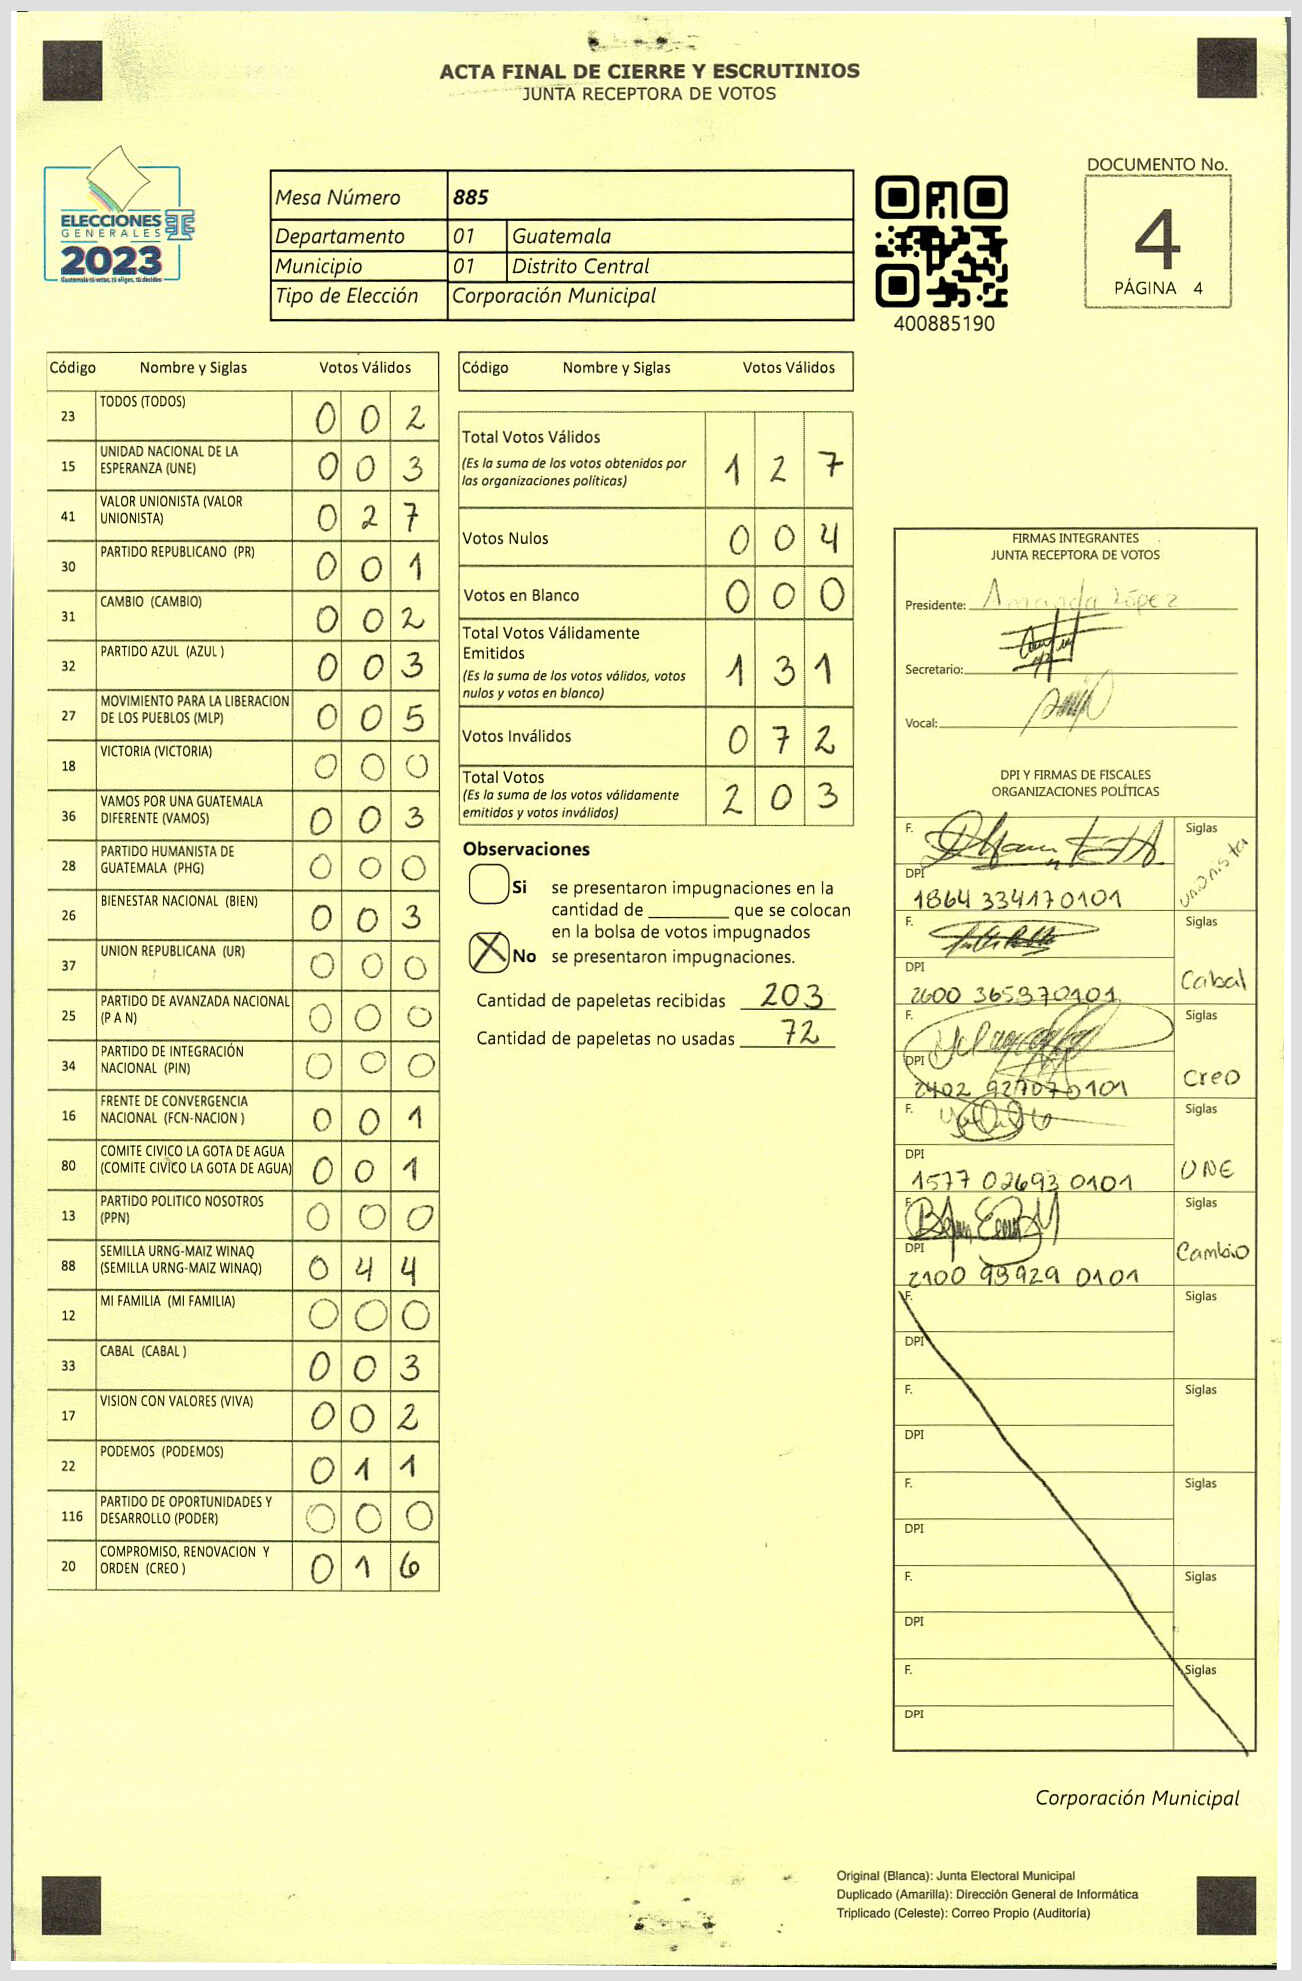 ACTA FINAL DE CIERRE Y ESCRUTINIOS
JUNTA RECEPTORA DE VOTOS
ELECCIONES
GENERALES
2023
Guatemala tú votas, tú eliges, tú decides
Mesa Número 885
Departamento 01 Guatemala
Municipio 01 Distrito Central
Tipo de Elección Corporación Municipal
400885190
DOCUMENTO No.
4
PÁGINA 4
Código Nombre y Siglas Votos Válidos
23 TODOS (TODOS) 0 0 2
15 UNIDAD NACIONAL DE LA ESPERANZA (UNE) 0 0 3
41 VALOR UNIONISTA (VALOR UNIONISTA) 0 2 7
30 PARTIDO REPUBLICANO (PR) 0 0 1
31 CAMBIO (CAMBIO) 0 0 2
32 PARTIDO AZUL (AZUL ) 0 0 3
27 MOVIMIENTO PARA LA LIBERACION DE LOS PUEBLOS (MLP) 0 0 5
18 VICTORIA (VICTORIA) 0 0 0
36 VAMOS POR UNA GUATEMALA DIFERENTE (VAMOS) 0 0 3
28 PARTIDO HUMANISTA DE GUATEMALA (PHG) 0 0 0
26 BIENESTAR NACIONAL (BIEN) 0 0 3
37 UNION REPUBLICANA (UR) 0 0 0
25 PARTIDO DE AVANZADA NACIONAL (P A N) 0 0 0
34 PARTIDO DE INTEGRACIÓN NACIONAL (PIN) 0 0 0
16 FRENTE DE CONVERGENCIA NACIONAL (FCN-NACION ) 0 0 1
80 COMITE CIVICO LA GOTA DE AGUA (COMITE CIVICO LA GOTA DE AGUA) 0 0 1
13 PARTIDO POLITICO NOSOTROS (PPN) 0 0 0
88 SEMILLA URNG-MAIZ WINAQ (SEMILLA URNG-MAIZ WINAQ) 0 4 4
12 MI FAMILIA (MI FAMILIA) 0 0 0
33 CABAL (CABAL ) 0 0 3
17 VISION CON VALORES (VIVA) 0 0 2
22 PODEMOS (PODEMOS) 0 1 1
116 PARTIDO DE OPORTUNIDADES Y DESARROLLO (PODER) 0 0 0
20 COMPROMISO, RENOVACION Y ORDEN (CREO ) 0 1 6
Código Nombre y Siglas Votos Válidos
Total Votos Válidos 1 2 7
(Es la suma de los votos obtenidos por
las organizaciones politicas)
Votos Nulos 0 0 4
Votos en Blanco 0 0 0
Total Votos Válidamente
Emitidos 1 3 1
(Es la suma de los votos válidos, votos
nulos y votos en blanco)
Votos Inválidos 0 7 2
Total Votos 2 0 3
(Es la suma de los votos válidamente
emitidos y votos inválidos)
Observaciones
Si se presentaron impugnaciones en la
cantidad de ________ que se colocan
en la bolsa de votos impugnados
X No se presentaron impugnaciones.
Cantidad de papeletas recibidas 203
Cantidad de papeletas no usadas 72
FIRMAS INTEGRANTES
JUNTA RECEPTORA DE VOTOS
Presidente: Amanda López
Secretario:
Vocal:
DPI Y FIRMAS DE FISCALES
ORGANIZACIONES POLÍTICAS
F. Siglas
DPI unionista
1864 33417 0101
F. Siglas
DPI Cabal
2600 36537 0101
F. Siglas
DPI Creo
2402 92707 0101
F. Siglas
DPI UNE
1577 02693 0101
F. Siglas
DPI Cambio
2100 93929 0101
F. Siglas
DPI
F. Siglas
DPI
F. Siglas
DPI
F. Siglas
DPI
F. Siglas
DPI
Corporación Municipal
Original (Blanca): Junta Electoral Municipal
Duplicado (Amarilla): Dirección General de Informática
Triplicado (Celeste): Correo Propio (Auditoría)